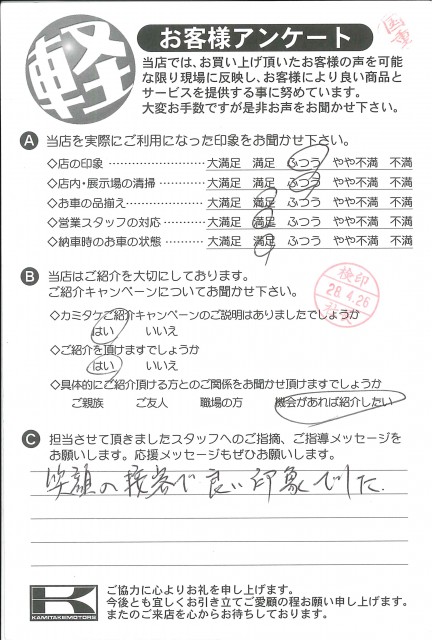 軽
お客様アンケート
国重
当店では、お買い上げ頂いたお客様の声を可能
な限り現場に反映し、お客様により良い商品と
サービスを提供する事に努めています。
大変お手数ですが是非お声をお聞かせ下さい。
A 当店を実際にご利用になった印象をお聞かせ下さい。
◇店の印象 ………………………… 大満足 満足 ふつう やや不満 不満
◇店内・展示場の清掃 …………… 大満足 満足 ふつう やや不満 不満
◇お車の品揃え…………………… 大満足 満足 ふつう やや不満 不満
◇営業スタッフの対応 …………… 大満足 満足 ふつう やや不満 不満
◇納車時のお車の状態 ………… 大満足 満足 ふつう やや不満 不満
B 当店はご紹介を大切にしております。
ご紹介キャンペーンについてお聞かせ下さい。
検印
28.4.26
◇カミタケご紹介キャンペーンのご説明はありましたでしょうか
はい いいえ
◇ご紹介を頂けますでしょうか
はい いいえ
◇具体的にご紹介頂ける方とのご関係をお聞かせ頂けますでしょうか
ご親族 ご友人 職場の方 機会があれば紹介したい
C 担当させて頂きましたスタッフへのご指摘、ご指導メッセージを
お願いします。応援メッセージもぜひお願いします。
笑顔の接客で良い印象でした.
K
KAMITAKEMOTORS
ご協力に心よりお礼を申し上げます。
今後とも宜しくお引き立てご愛顧の程お願い申し上げます。
またのご来店を心からお待ちしております。